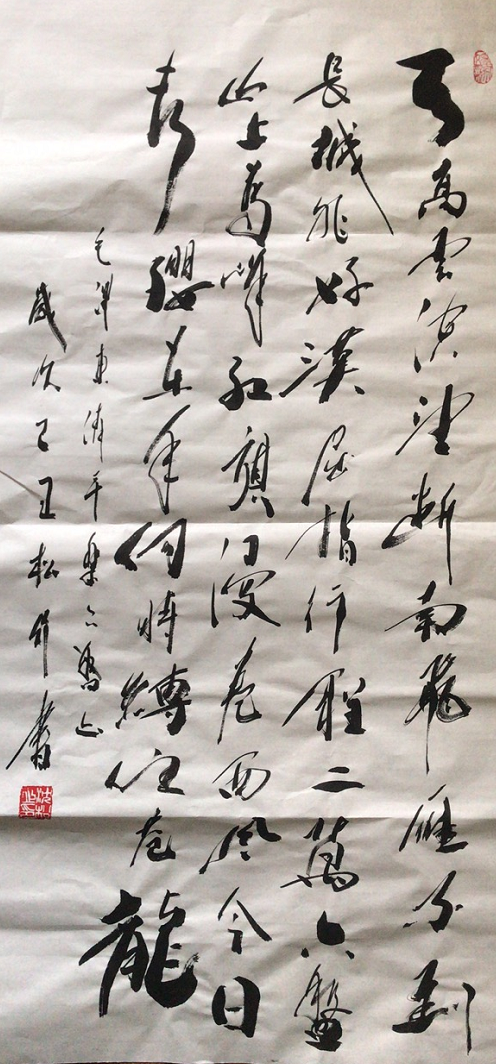 天高雲淡望断南飛雁不到
長城非好漢屈指行程二萬六盤
山上高峰红旗漫卷西風今日
長纓在手何時縛住苍龍
毛澤東清平樂六盤山
歲次己丑松竹書